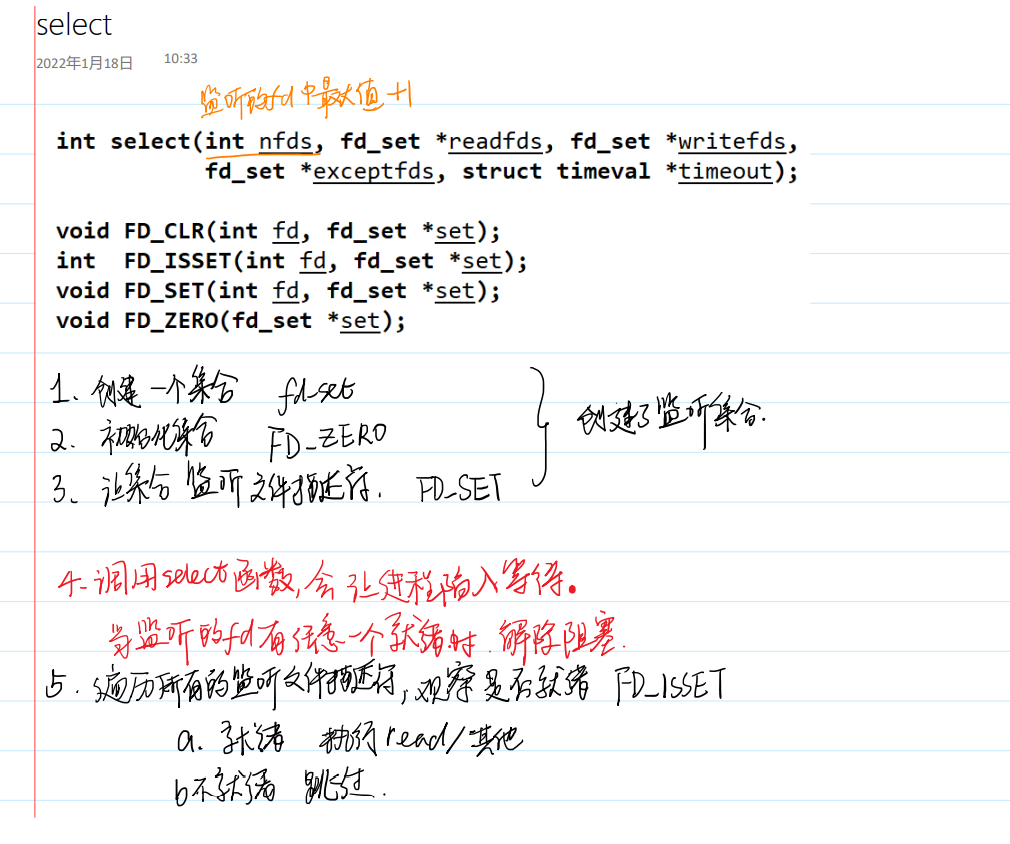 select
2022年1月18日 10:33
监听的fd中最大值+1
int select(int nfds, fd_set *readfds, fd_set *writefds,
fd_set *exceptfds, struct timeval *timeout);
void FD_CLR(int fd, fd_set *set);
int FD_ISSET(int fd, fd_set *set);
void FD_SET(int fd, fd_set *set);
void FD_ZERO(fd_set *set);
1、创建一个集合 fd_set
2. 初始化集合 FD_ZERO
3、让集合监听文件描述符. FD_SET
创建了监听集合.
4-调用select函数,会让进程陷入等待。
当监听的fd有任意一个就绪时.解除阻塞.
5.遍历所有的监听文件描述符,观察是否就绪 FD_ISSET
a. 就绪 执行read/其他
b不就绪 跳过.